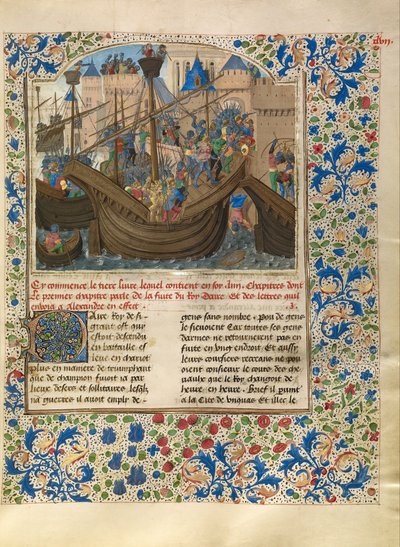 lvii
Cy commence le tiers livre lequel contient en soy .xiii. Chapitres dont
Le premier chapitre parle de la fuite du Roy Daire Et des lettres quil
envoia a Alexandre en effect
Daire Roy de si
grant ost qui
estoit descendu
en bataille et
leve en chariot
plus en maniere de triumphant
que de champion fuioit ia par
lieux desers et sollitaires lesqlz
na gueires il avoit empli de
gens sans nombre. Pou de gens
le sievoient Car toutes ses gens
darmes ne retournerent pas en
fuite en ung endroit Et aussy
leurs coursiers recreans ne pou
oient consievir le cours des che
vaulx que le Roy changoit de
heure en heure. Brief il vint
a la Cite de Et illec le